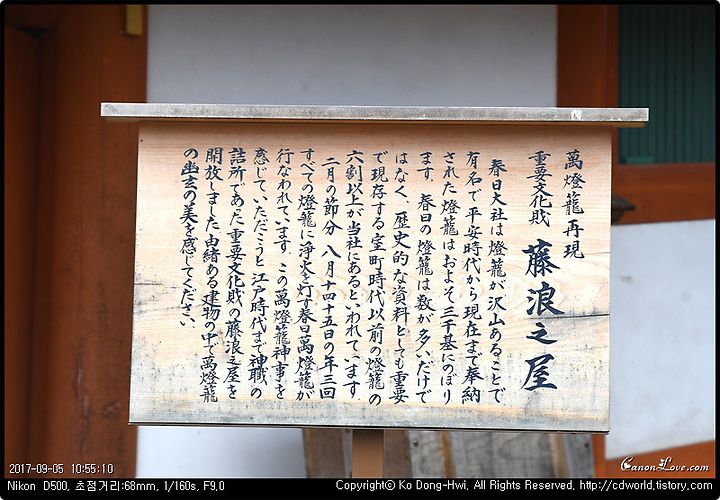 萬燈籠再現
重要文化財 藤浪之屋
春日大社は燈籠が沢山あることで
有名で平安時代から現在まで奉納
された燈籠はおよそ三千基にのぼり
ます。春日の燈籠は数が多いだけで
はなく、歴史的な資料としても重要
で現存する室町時代以前の燈籠の
六割以上が当社にあるといわれています
二月の節分 八月十四十五日の年三回
すべての燈籠に浄火を灯す春日萬燈籠が
行なわれています。この萬燈籠神事を
感じていただこうと江戸時代まで神職の
詰所であった重要文化財の藤浪之屋を
開放しました由緒ある建物の中で萬燈籠
の幽玄の美を感じてください。
2017-09-05 10:55:10
Nikon D500, 초점거리:68mm, 1/160s, F9.0
Copyright© Ko Dong-Hwi, All Rights Reserved, http://cdworld.tistory.com
CanonLove.com